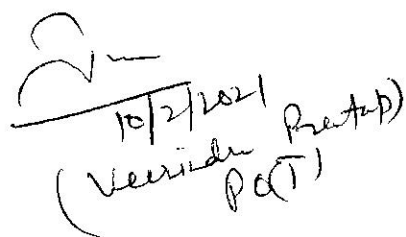 10/2/2021
(Veerindra Pratap)
PO(T)